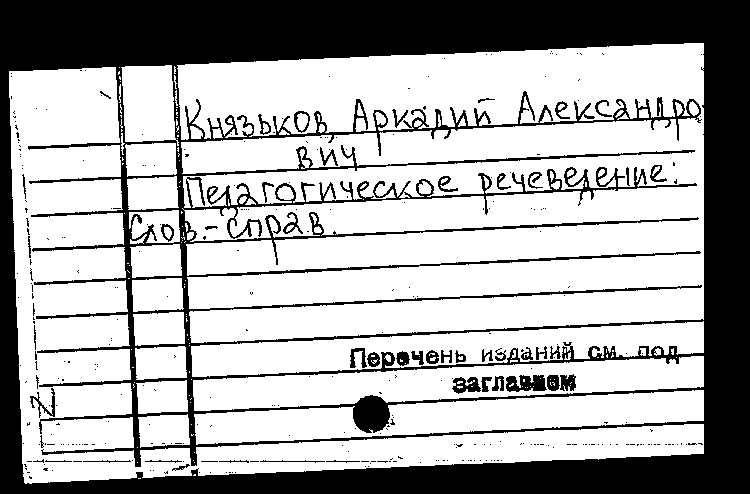 Князьков, Аркадий Александро-
вич
Педагогическое речеведение:
Слов.-справ.
Перечень изданий см. под
заглавием